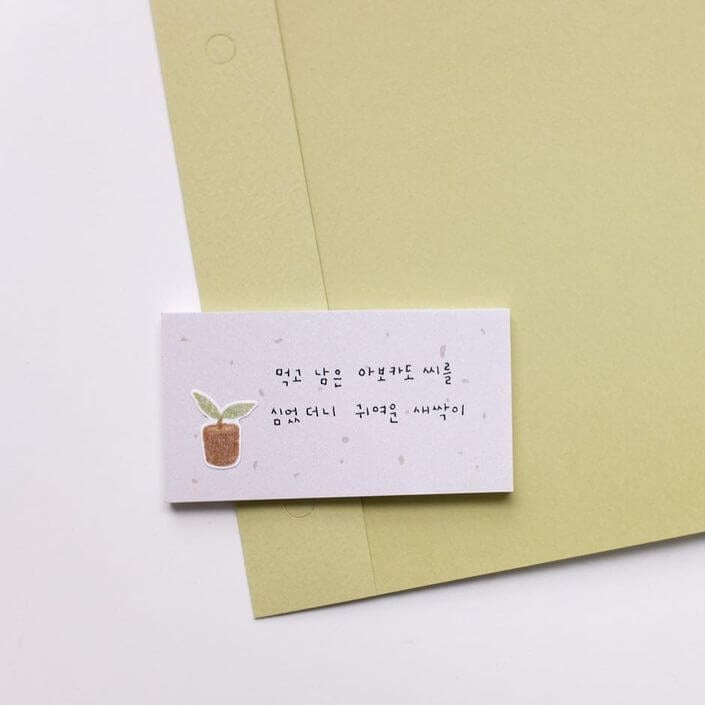 먹고 남은 아보카도 씨를
심었더니 귀여운 새싹이